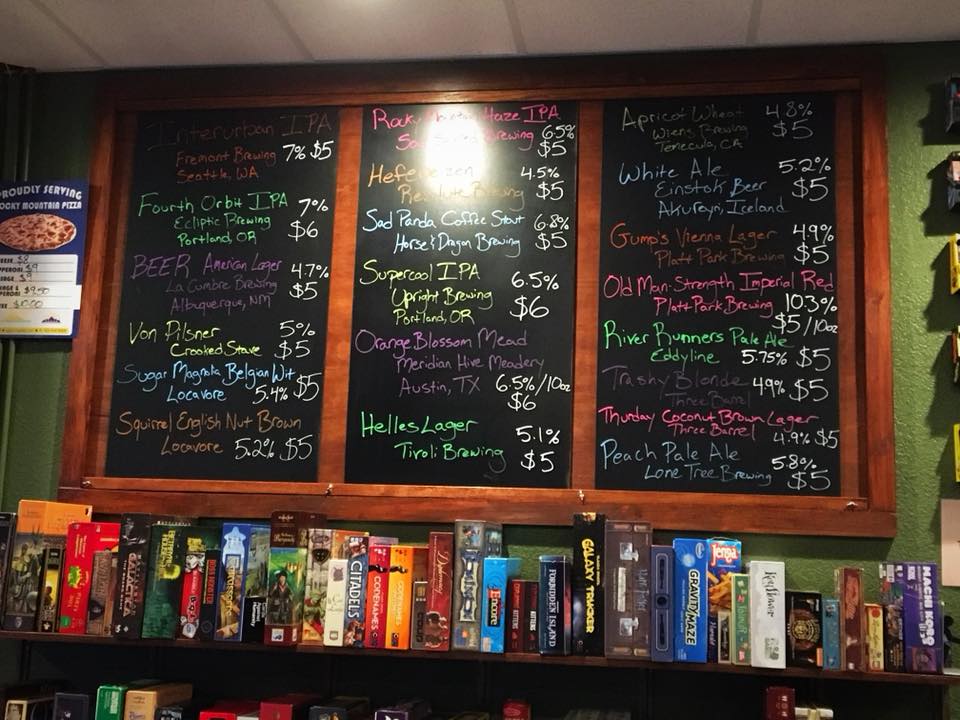 PROUDLY SERVING
ROCKY MOUNTAIN PIZZA
Interurban IPA
Fremont Brewing 7% $5
Seattle, WA
Fourth Orbit IPA 7%
Ecliptic Brewing $6
Portland, OR
BEER American Lager 4.7%
La Cumbre Brewing $5
Albuquerque, NM
Von Pilsner 5%
Crooked Stave $5
Sugar Magnolia Belgian Wit
Locavore 5.4% $5
Squirrel English Nut Brown
Locavore 5.2% $5
Rocky Mountain Haze IPA
Brewing 6.5%
$5
Hefeweizen 4.5%
Resolute Brewing $5
Sad Panda Coffee Stout 6.8%
Horse & Dragon Brewing $5
Supercool IPA 6.5%
Upright Brewing $6
Portland, OR
Orange Blossom Mead
Meridian Hive Meadery
Austin, TX 6.5%/10oz
$6
Helles Lager 5.1%
Tivoli Brewing $5
Apricot Wheat 4.8%
Wiens Brewing $5
Temecula, CA
White Ale 5.2%
Einstok Beer $5
Akureyri, Iceland
Gump's Vienna Lager 4.9%
Platt Park Brewing $5
Old Man Strength Imperial Red
Platt Park Brewing 10.3%
$5/10oz
River Runners Pale Ale
Eddyline 5.75% $5
Trashy Blonde 4.9% $5
Three Barrel
Thurday Coconut Brown Lager
Three Barrel 4.9% $5
Peach Pale Ale 5.8%
Lone Tree Brewing $5
CITADELS
CODENAMES
CODENAMES
Diplomacy
Encore
FORBIDDEN ISLAND
GALAXY TRUCKER
GRAVITY MAZE
Jenga
Keyflower
MACHI KORO